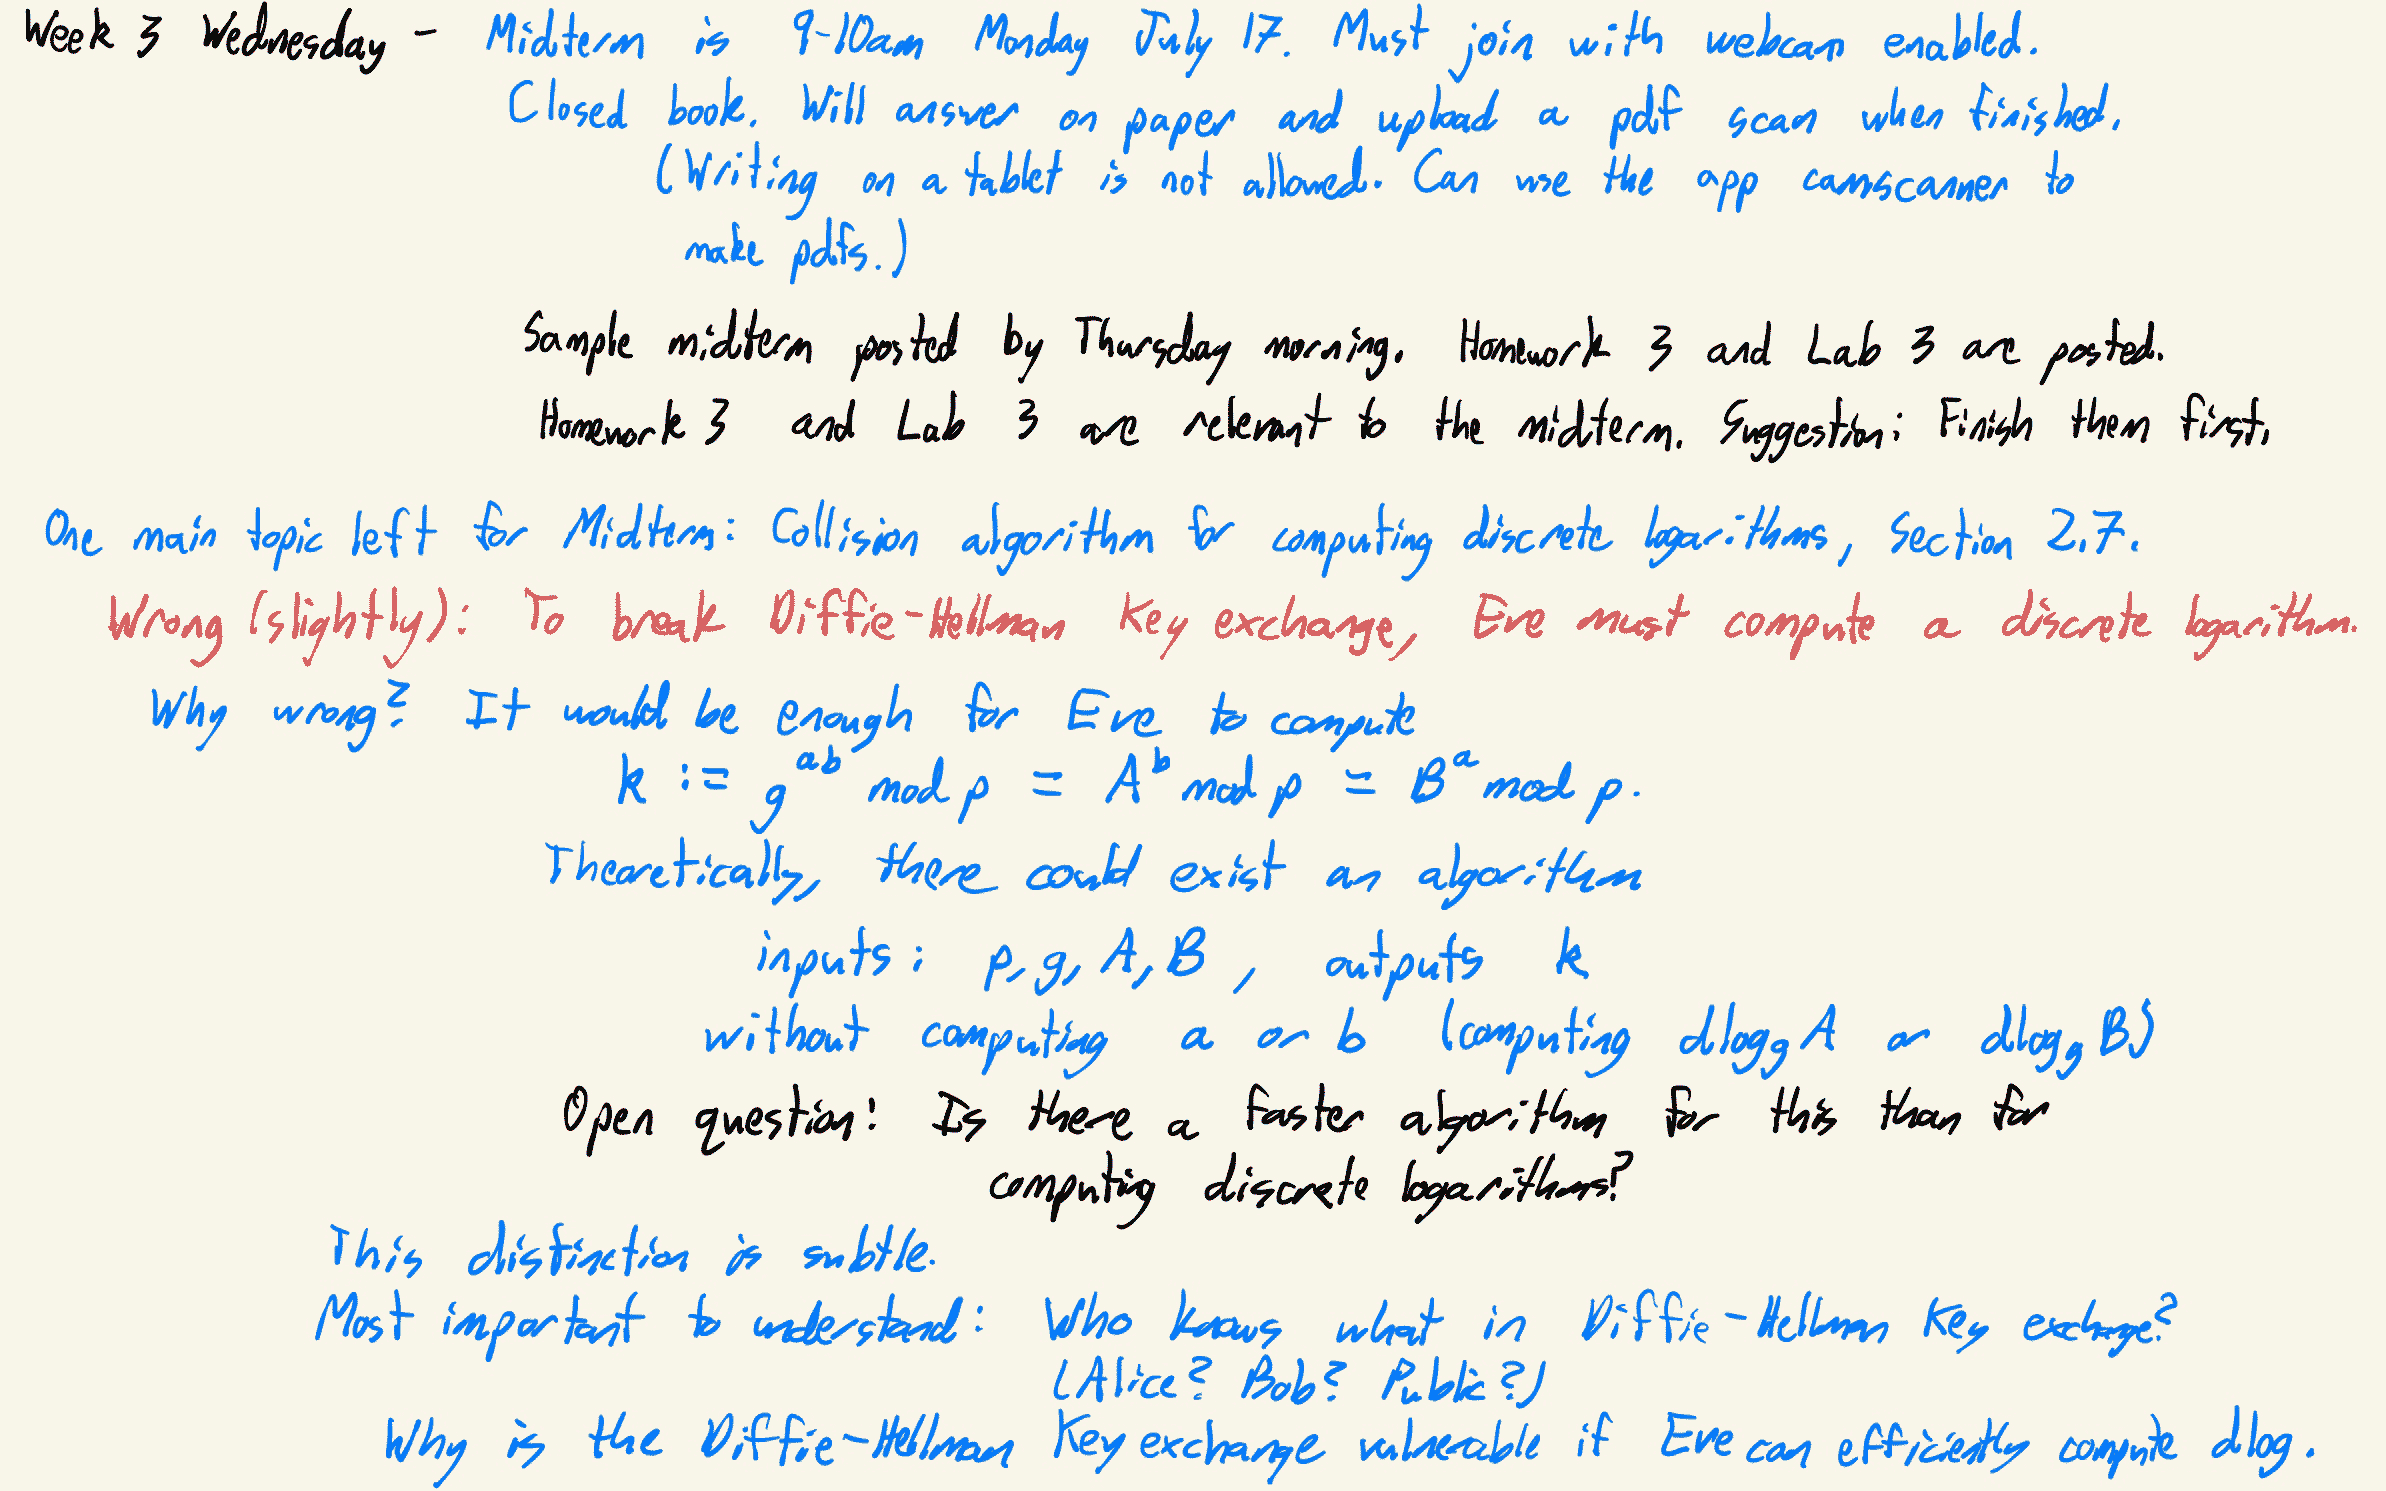 Week 3 Wednesday - Midterm is 9-10am Monday July 17. Must join with webcam enabled.
Closed book. Will answer on paper and upload a pdf scan when finished.
(Writing on a tablet is not allowed. Can use the app camscanner to
make pdfs.)
Sample midterm posted by Thursday morning. Homework 3 and Lab 3 are posted.
Homework 3 and Lab 3 are relevant to the midterm. Suggestion: Finish them first.
One main topic left for Midterm: Collision algorithm for computing discrete logarithms, Section 2.7.
Wrong (slightly): To break Diffie-Hellman Key exchange, Eve must compute a discrete logarithm.
Why wrong? It would be enough for Eve to compute
k := g^{ab} mod p = A^b mod p = B^a mod p.
Theoretically, there could exist an algorithm
inputs: p, g, A, B, outputs k
without computing a or b (computing dlog_g A or dlog_g B)
Open question: Is there a faster algorithm for this than for
computing discrete logarithms?
This distinction is subtle.
Most important to understand: Who knows what in Diffie-Hellman Key exchange?
(Alice? Bob? Public?)
Why is the Diffie-Hellman Key exchange vulnerable if Eve can efficiently compute dlog.